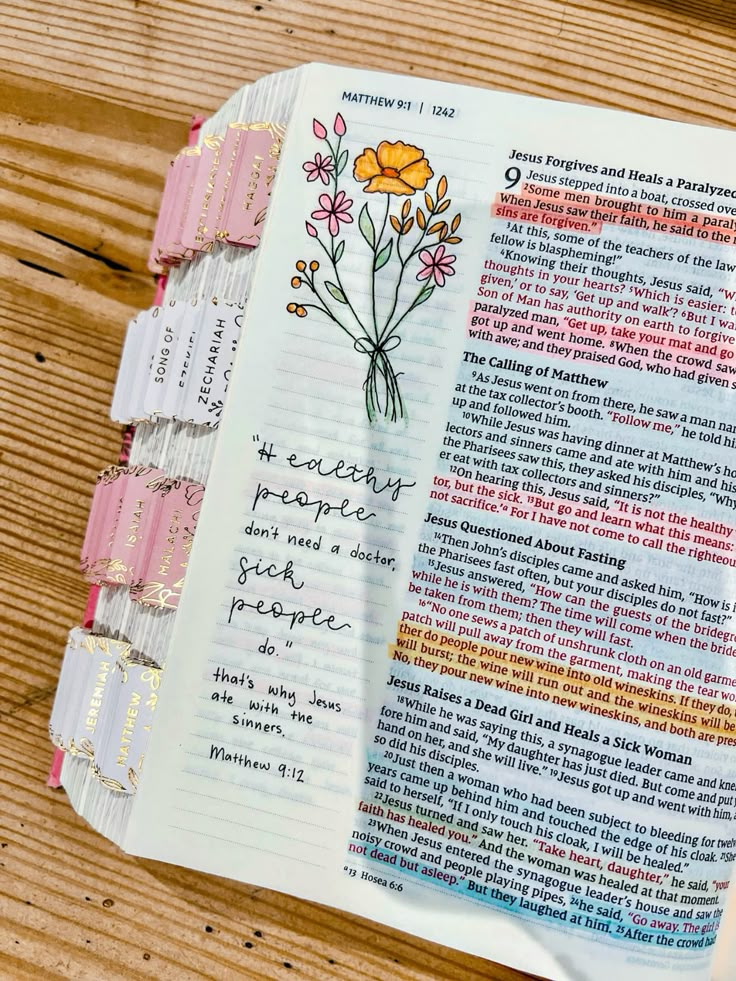 MATTHEW 9:1 | 1242
HAGGAI
SONG OF
ZECHARIAH
ISAIAH
MALACHI
JEREMIAH
MATTHEW
"Healthy
people
don't need a doctor,
sick
people
do."
that's why Jesus
ate with the
sinners.
Matthew 9:12
Jesus Forgives and Heals a Paralyzed
9 Jesus stepped into a boat, crossed ove
2Some men brought to him a paraly
When Jesus saw their faith, he said to the
sins are forgiven."
3At this, some of the teachers of the law
fellow is blaspheming!"
4Knowing their thoughts, Jesus said, "W
thoughts in your hearts? 5Which is easier: t
given,' or to say, 'Get up and walk'? 6But I wa
Son of Man has authority on earth to forgive
paralyzed man, "Get up, take your mat and go
got up and went home. 8When the crowd saw
with awe; and they praised God, who had given s
The Calling of Matthew
9As Jesus went on from there, he saw a man nar
at the tax collector's booth. "Follow me," he told hi
up and followed him.
10While Jesus was having dinner at Matthew's ho
lectors and sinners came and ate with him and his
the Pharisees saw this, they asked his disciples, "Why
er eat with tax collectors and sinners?"
12On hearing this, Jesus said, "It is not the healthy
tor, but the sick. 13But go and learn what this means:
not sacrifice.'a For I have not come to call the righteou
Jesus Questioned About Fasting
14Then John's disciples came and asked him, "How is i
the Pharisees fast often, but your disciples do not fast?"
15Jesus answered, "How can the guests of the bridegr
while he is with them? The time will come when the bride
be taken from them; then they will fast.
16"No one sews a patch of unshrunk cloth on an old garme
patch will pull away from the garment, making the tear wo
ther do people pour new wine into old wineskins. If they do,
will burst; the wine will run out and the wineskins will be
No, they pour new wine into new wineskins, and both are pres
Jesus Raises a Dead Girl and Heals a Sick Woman
18While he was saying this, a synagogue leader came and knel
fore him and said, "My daughter has just died. But come and put y
hand on her, and she will live." 19Jesus got up and went with him, a
so did his disciples.
20Just then a woman who had been subject to bleeding for twelv
years came up behind him and touched the edge of his cloak. 21She
said to herself, "If I only touch his cloak, I will be healed."
22Jesus turned and saw her. "Take heart, daughter," he said, "your
faith has healed you." And the woman was healed at that moment.
23When Jesus entered the synagogue leader's house and saw the
noisy crowd and people playing pipes, 24he said, "Go away. The girl is
not dead but asleep." But they laughed at him. 25After the crowd had
a 13 Hosea 6:6